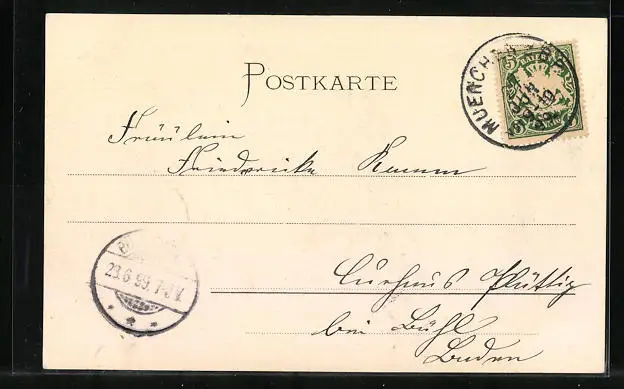 POSTKARTE
MUENCHEN
5 BAYERN 5
Fräulein
Friedericke Kamm
23.6.99.7-8V.
Curhaus Plättig
bei Bühl
Baden